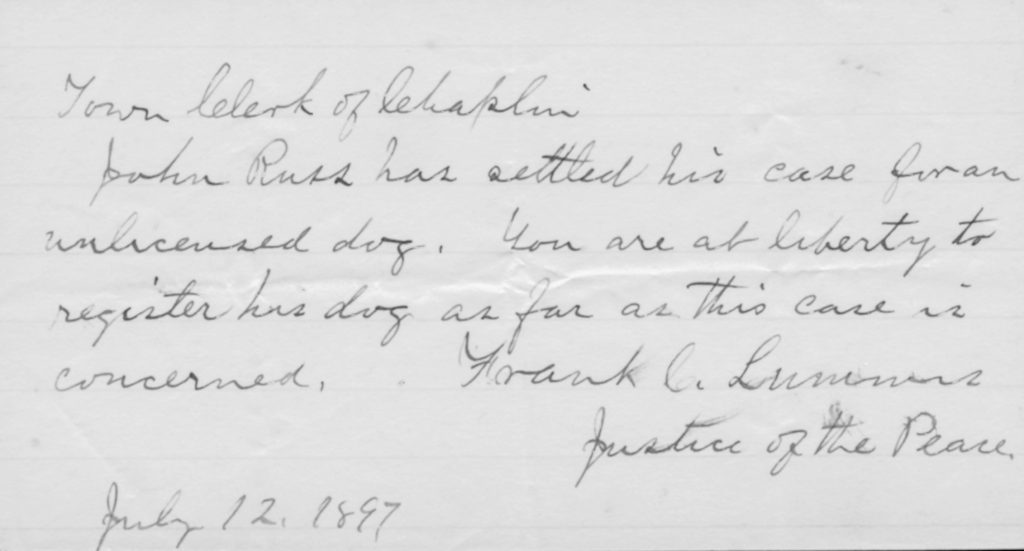 Town Clerk of Chaplin
John Russ has settled his case for an
unlicensed dog. You are at liberty to
register his dog as far as this case is
concerned. Frank C. Lummis
Justice of the Peace.
July 12, 1897